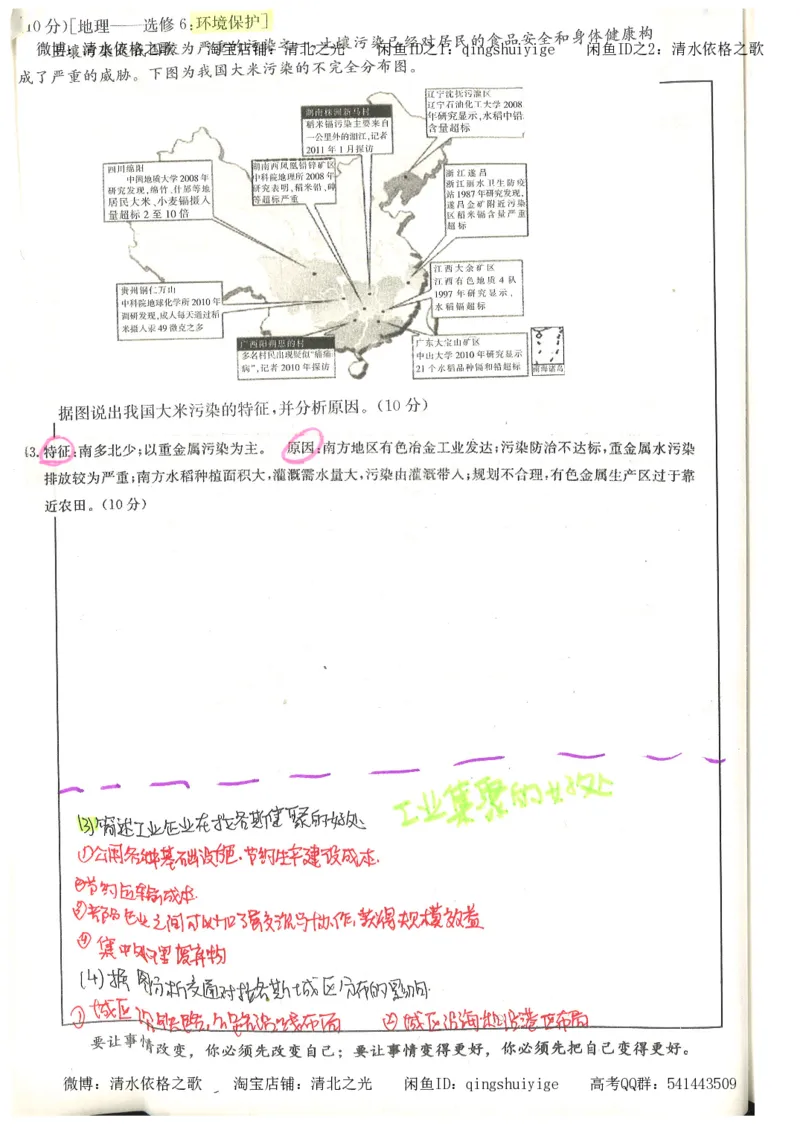 10分)[地理——选修6:环境保护]
微博：清水依格之歌 淘宝店铺：清北之光 闲鱼ID之1：qingshuiyige 闲鱼ID之2：清水依格之歌
成了严重的威胁。下图为我国大米污染的不完全分布图。
辽宁沈抚污灌区
辽宁石油化工大学2008
年研究显示,水稻中铅
含量超标
湖南株洲新马村
稻米镉污染主要来自
一公里外的湘江,记者
2011年1月探访
四川绵阳
中国地质大学2008年
研究发现,绵竹、什邡等地
居民大米、小麦镉摄入
量超标2至10倍
湖南西凤凰铅锌矿区
中科院地理所2008年
研究表明,稻米铅、砷
等超标严重
浙江遂昌
浙江丽水卫生防疫
站1987年研究发现,
遂昌金矿附近污染
区稻米镉含量严重
超标
江西大余矿区
江西有色地质4队
1997年研究显示,
水稻镉超标
贵州铜仁万山
中科院地球化学所2010年
调研发现,成人每天通过稻
米摄入汞49微克之多
广西阳朔思的村
多名村民出现疑似“痛痛
病”,记者2010年探访
广东大宝山矿区
中山大学2010年研究显示
21个水稻品种镉和铅超标
南海诸岛
据图说出我国大米污染的特征,并分析原因。(10分)
43.特征:南多北少;以重金属污染为主。 原因:南方地区有色冶金工业发达;污染防治不达标,重金属水污染
排放较为严重;南方水稻种植面积大,灌溉需水量大,污染由灌溉带入;规划不合理,有色金属生产区过于靠
近农田。(10分)
工业集聚的好处
(3)简述工业企业在拉各斯集聚的好处
①公用各种基础设施,节约生产建设成本.
②节约运输成本.
③各企业之间可以加强交流与协作,获得规模效益
④集中处理废弃物
(4)据图分析交通对拉各斯城区分布的影响
①城区沿铁路,公路沿线布局 ②城区沿海地沿港口布局
要让事情改变，你必须先改变自己；要让事情变得更好，你必须先把自己变得更好。
微博：清水依格之歌 淘宝店铺：清北之光 闲鱼ID：qingshuiyige 高考QQ群：541443509